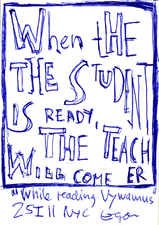 When tHE
THE STUDENT
IS READY,
THE TEACH
WILL COME ER
"While reading Vywamus"
NYC